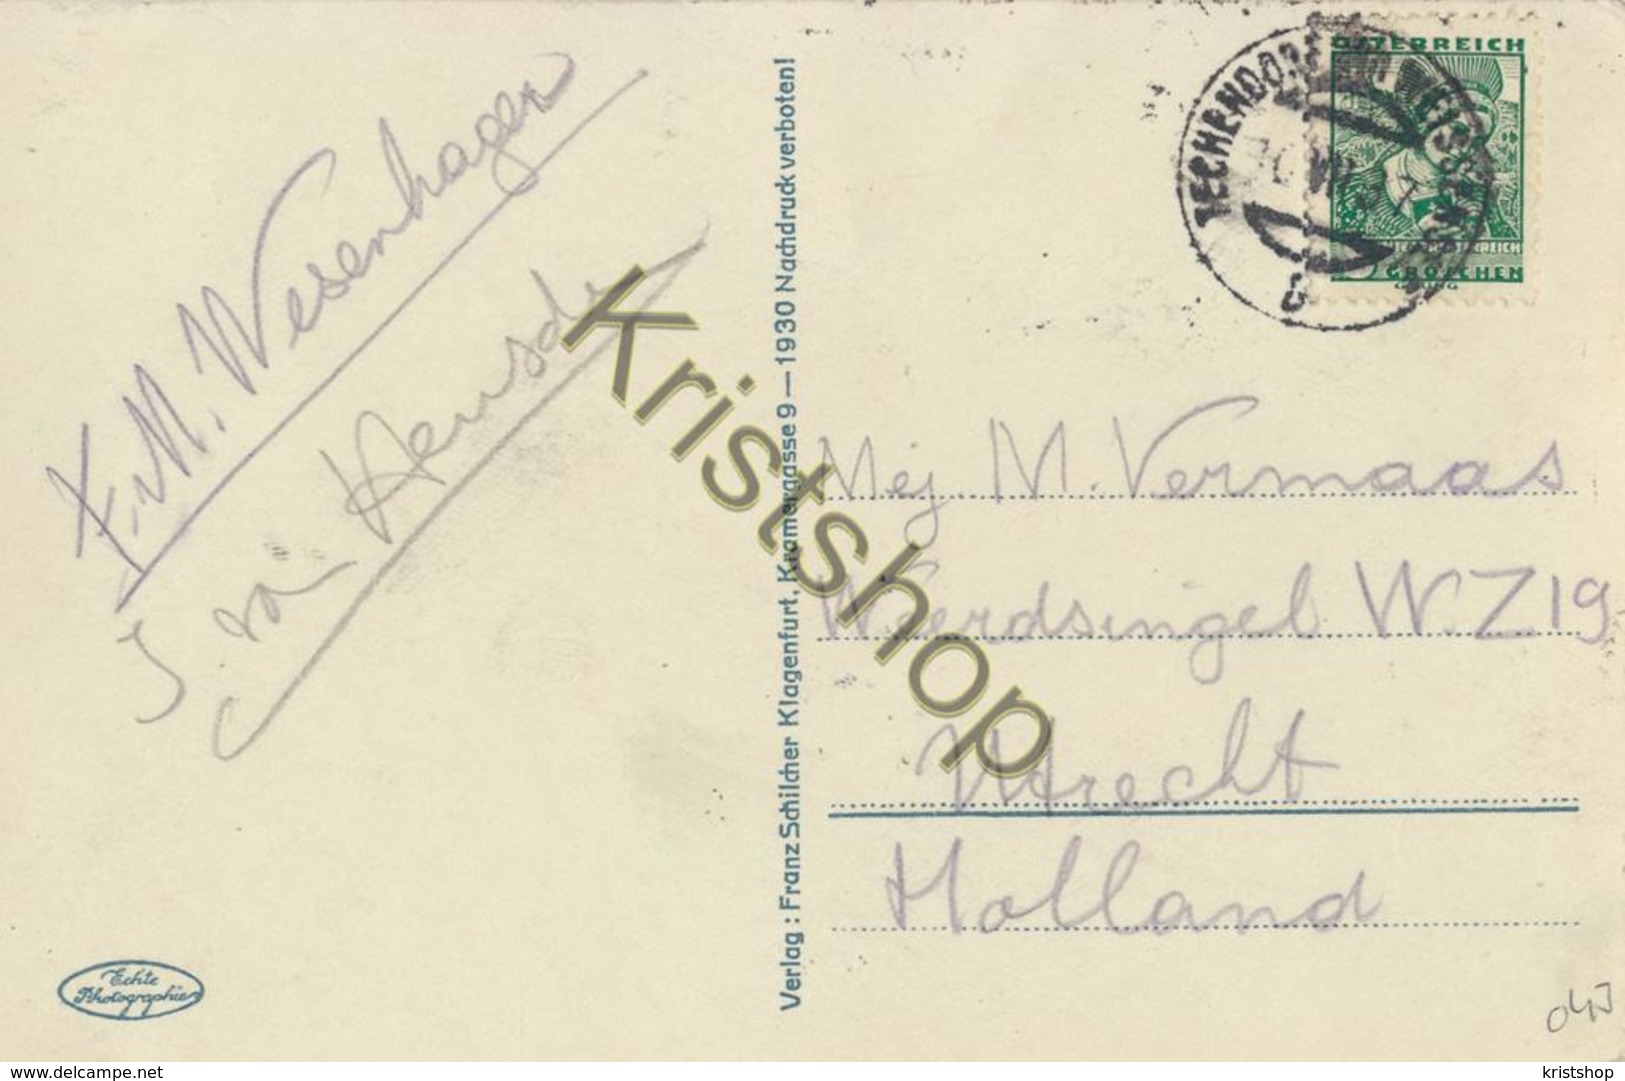 F.M. Wesenhagen
J. van Heusde
Echte
Photographie
Verlag : Franz Schilcher Klagenfurt, Kramergasse 9 — 1930 Nachdruck verboten!
ÖSTERREICH
TECHENDORF
GROSCHEN
Mej. M. Vermaas
Weerdsingel W.Z 19
Utrecht
Holland
Kristshop
www.delcampe.net
kristshop